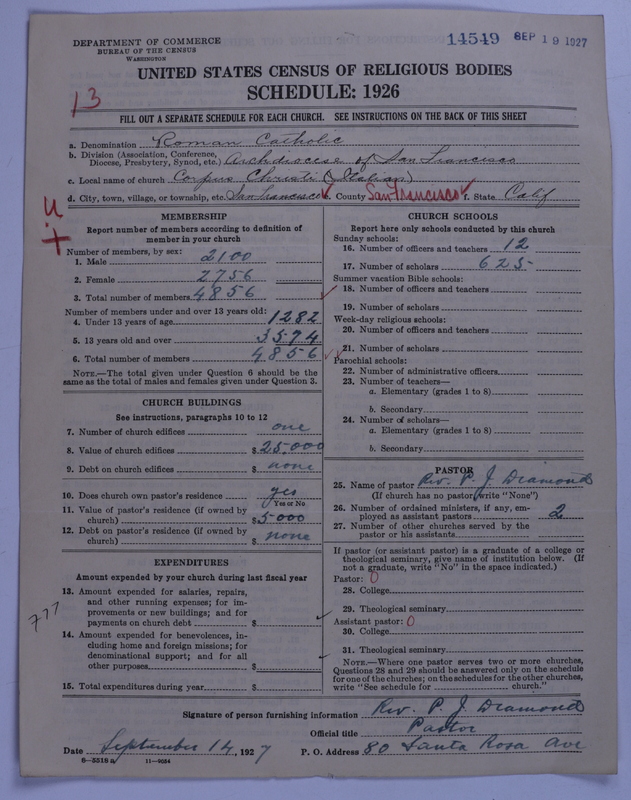 DEPARTMENT OF COMMERCE
BUREAU OF THE CENSUS
WASHINGTON
14549 SEP 19 1927
UNITED STATES CENSUS OF RELIGIOUS BODIES
SCHEDULE: 1926
13
FILL OUT A SEPARATE SCHEDULE FOR EACH CHURCH. SEE INSTRUCTIONS ON THE BACK OF THIS SHEET
a. Denomination Roman Catholic
b. Division (Association, Conference, Diocese, Presbytery, Synod, etc.) Archdiocese of San Francisco
c. Local name of church Corpus Christi (Italian)
d. City, town, village, or township, etc. San Francisco e. County San Francisco f. State Calif
MEMBERSHIP
Report number of members according to definition of
member in your church
Number of members, by sex:
1. Male 2100
2. Female 2756
3. Total number of members 4856
Number of members under and over 13 years old:
4. Under 13 years of age 1282
5. 13 years old and over 3574
6. Total number of members 4856
NOTE.—The total given under Question 6 should be the
same as the total of males and females given under Question 3.
CHURCH BUILDINGS
See instructions, paragraphs 10 to 12
7. Number of church edifices one
8. Value of church edifices $ 25,000
9. Debt on church edifices $ none
10. Does church own pastor's residence yes
Yes or No
11. Value of pastor's residence (if owned by
church) $ 5000
12. Debt on pastor's residence (if owned by
church) $ none
EXPENDITURES
Amount expended by your church during last fiscal year
13. Amount expended for salaries, repairs,
and other running expenses; for im-
provements or new buildings; and for
payments on church debt $
777
14. Amount expended for benevolences, in-
cluding home and foreign missions; for
denominational support; and for all
other purposes $
15. Total expenditures during year $
CHURCH SCHOOLS
Report here only schools conducted by this church
Sunday schools:
16. Number of officers and teachers 12
17. Number of scholars 625
Summer vacation Bible schools:
18. Number of officers and teachers
19. Number of scholars
Week-day religious schools:
20. Number of officers and teachers
21. Number of scholars
Parochial schools:
22. Number of administrative officers
23. Number of teachers—
a. Elementary (grades 1 to 8)
b. Secondary
24. Number of scholars—
a. Elementary (grades 1 to 8)
b. Secondary
PASTOR
25. Name of pastor Rev. P. J. Diamond
(If church has no pastor, write "None")
26. Number of ordained ministers, if any, em-
ployed as assistant pastors 2
27. Number of other churches served by the
pastor or his assistants
If pastor (or assistant pastor) is a graduate of a college or
theological seminary, give name of institution below. (If
not a graduate, write "No" in the space indicated.)
Pastor: 0
28. College
29. Theological seminary
Assistant pastor: 0
30. College
31. Theological seminary
NOTE.—Where one pastor serves two or more churches,
Questions 28 and 29 should be answered only on the schedule
for one of the churches; on the schedules for the other churches,
write "See schedule for church."
Signature of person furnishing information Rev. P. J. Diamond
Official title Pastor
Date September 14, 1927 P. O. Address 80 Santa Rosa Ave
6—5518a 11—9054